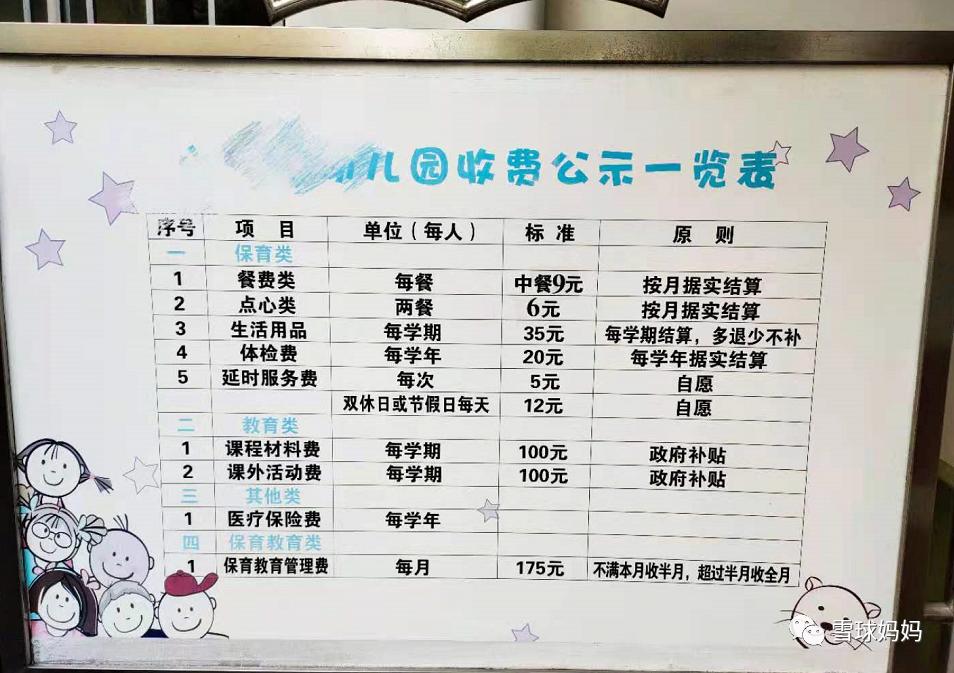 儿园收费公示一览表
序号 项目 单位（每人） 标准 原则
一 保育类
1 餐费类 每餐 中餐9元 按月据实结算
2 点心类 两餐 6元 按月据实结算
3 生活用品 每学期 35元 每学期结算，多退少不补
4 体检费 每学年 20元 每学年据实结算
5 延时服务费 每次 5元 自愿
双休日或节假日每天 12元 自愿
二 教育类
1 课程材料费 每学期 100元 政府补贴
2 课外活动费 每学期 100元 政府补贴
三 其他类
1 医疗保险费 每学年
四 保育教育类
1 保育教育管理费 每月 175元 不满本月收半月，超过半月收全月
雪球妈妈